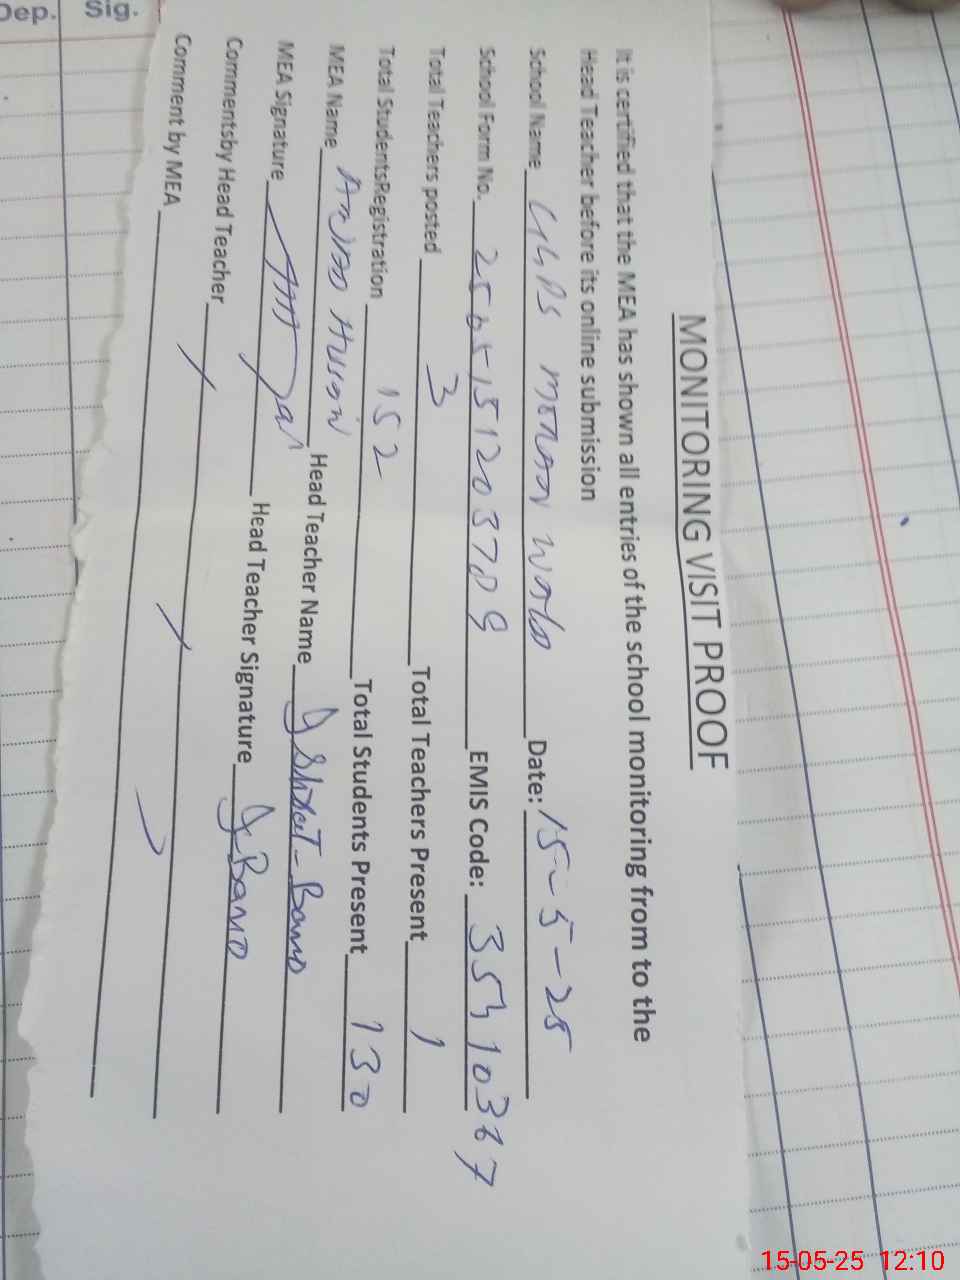 Dep. Sig.
MONITORING VISIT PROOF
It is certified that the MEA has shown all entries of the school monitoring from to the
Head Teacher before its online submission
School Name GGPS Date: 15-5-25
School Form No. 2505151203709 EMIS Code:
Total Teachers posted 3 Total Teachers Present 1
Total StudentsRegistration 152 Total Students Present 130
MEA Name Head Teacher Name Bano
MEA Signature Head Teacher Signature Bano
Commentsby Head Teacher
Comment by MEA
15-05-25 12:10